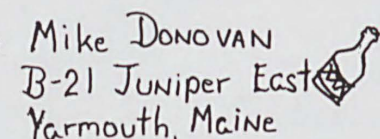 Mike DONOVAN
B-21 Juniper East
Yarmouth, Maine